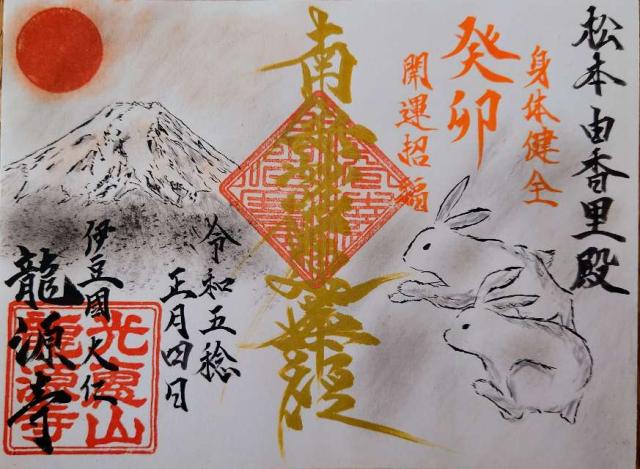 松本由香里殿
身体健全
癸卯
開運招福
南無妙法蓮華経
令和五稔
正月四日
伊豆國大仁
龍源寺
龍源寺